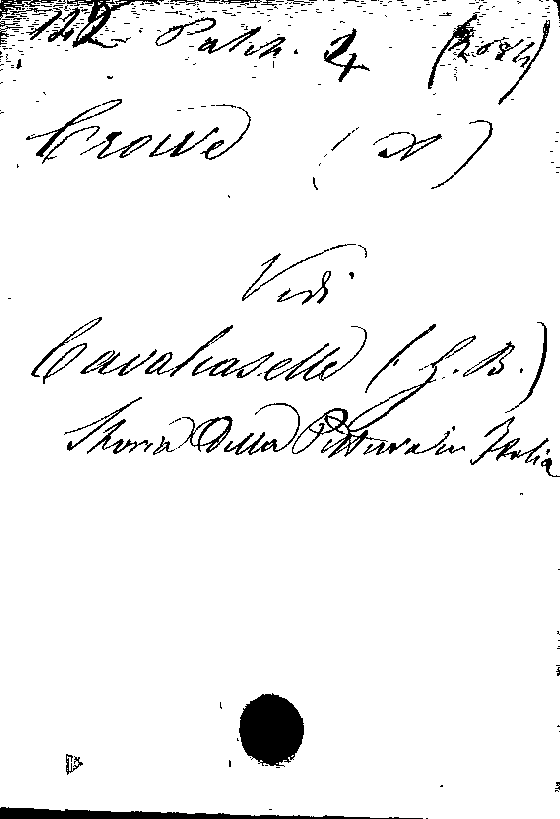 122 Palch. 2
Crowe ( )
Vedi
Cavalcaselle (G. B.)
Storia della Pittura in Italia